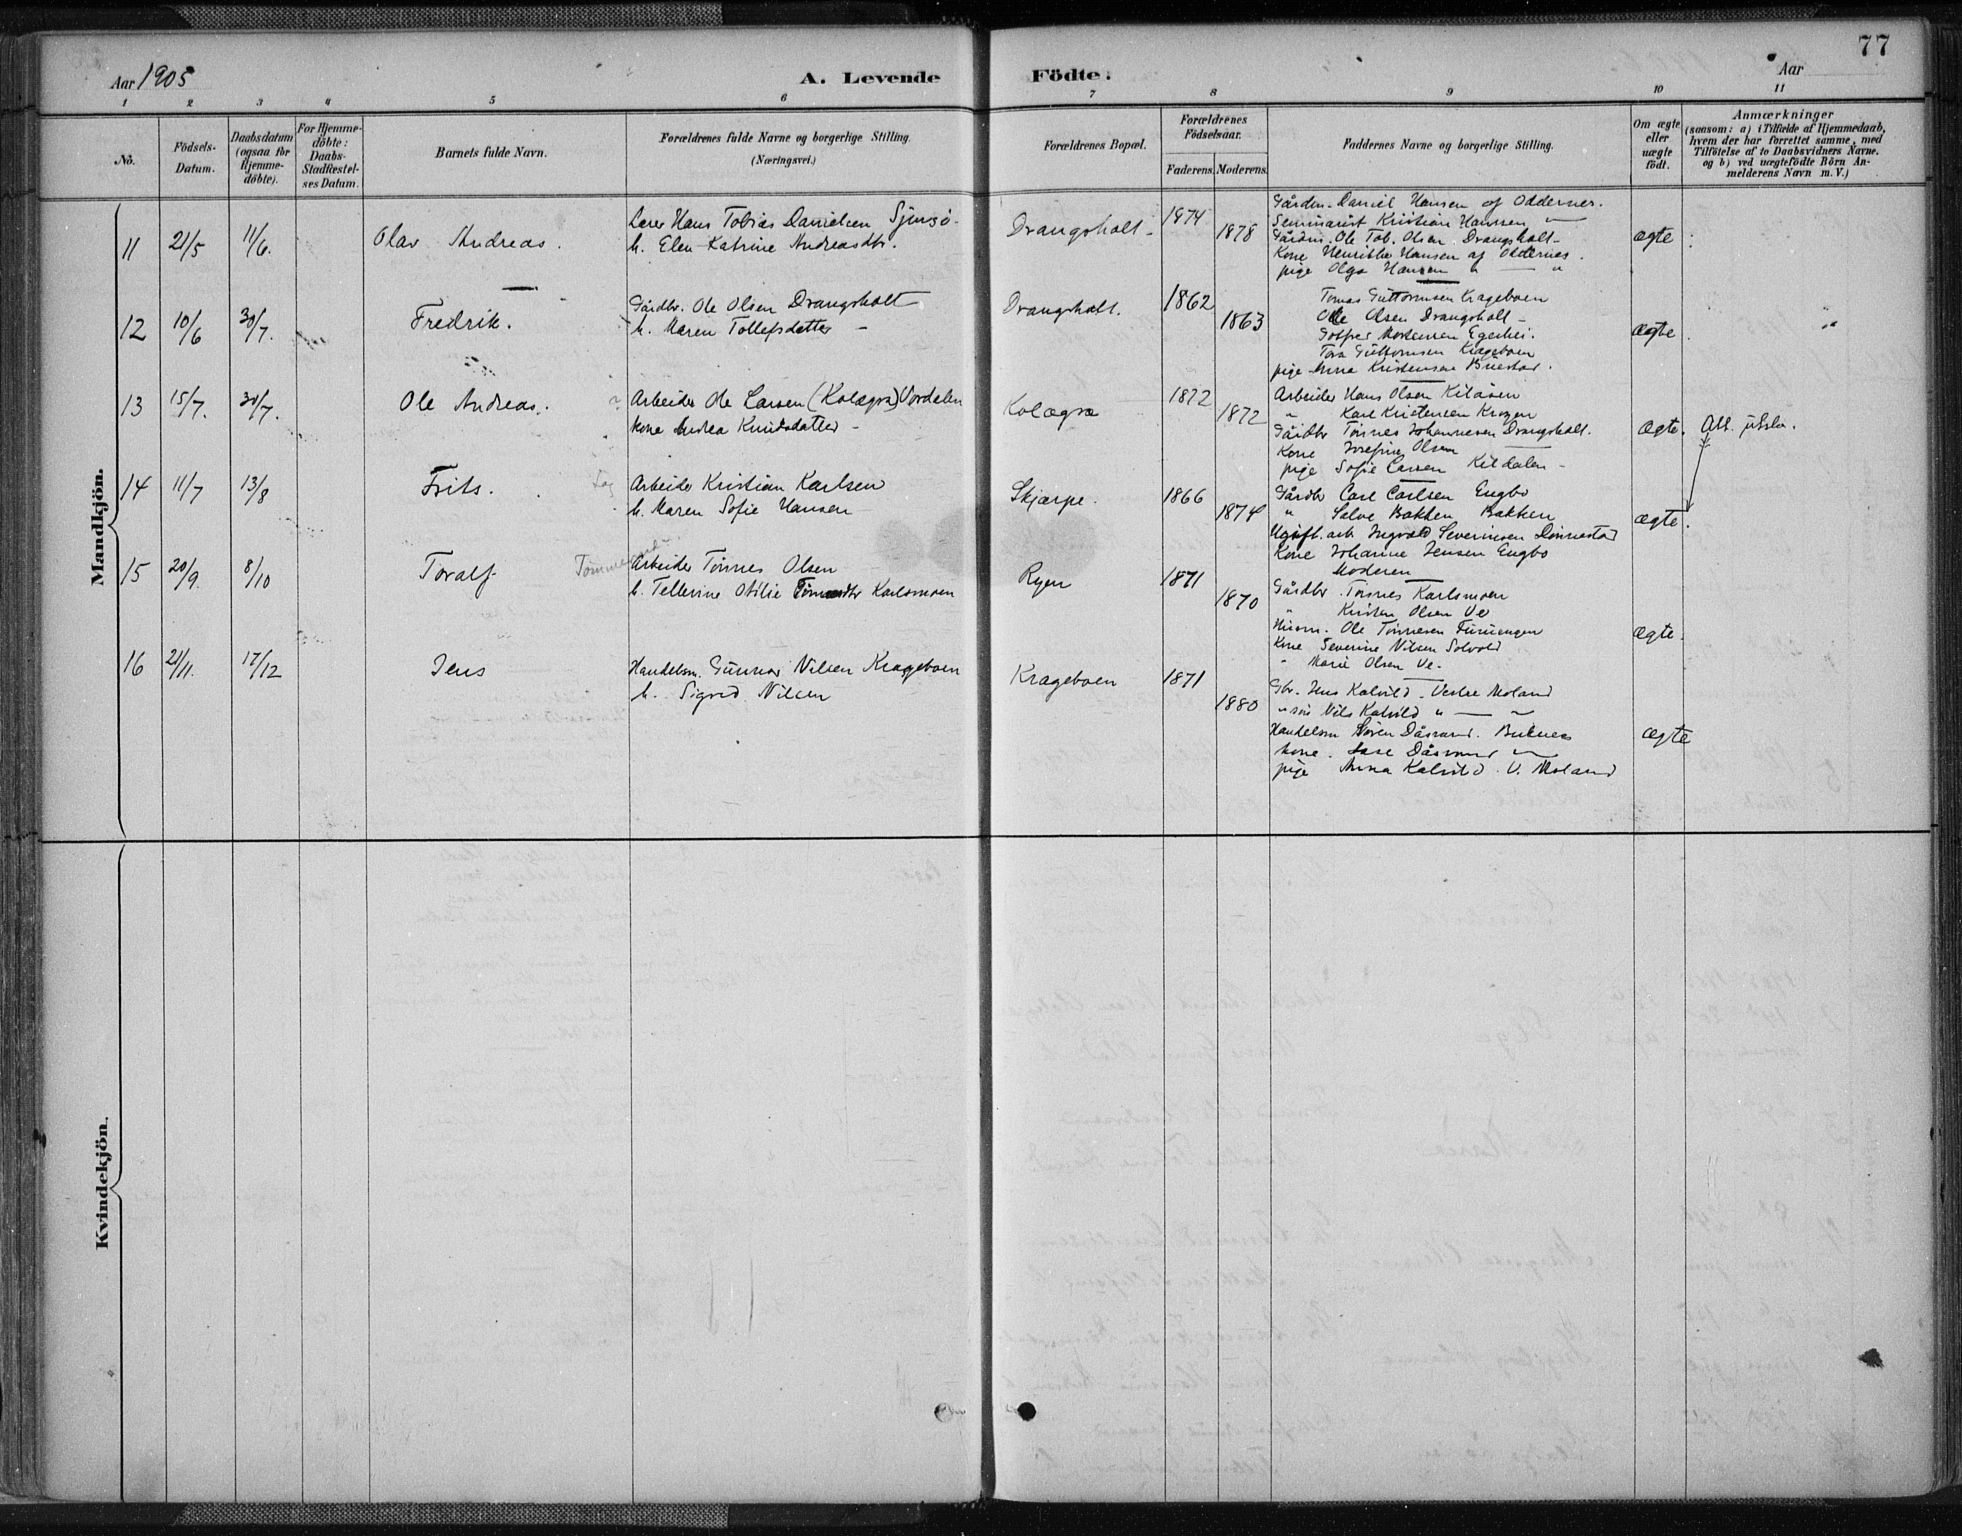 77
Aar 1905
A. Levende Födte.
Aar
1 2 3 4 5 6 7 8 9 10 11
No.
Födsels-Datum.
Daabsdatum (ogsaa for Hjemme-döbte).
For Hjemme-döbte: Daabs-Stadfæstel-ses Datum.
Barnets fulde Navn.
Forældrenes fulde Navne og borgerlige Stilling.
(Næringsvei.)
Forældrenes Bopæl.
Forældrenes Födselsaar.
Faderens. Moderens.
Faddernes Navne og borgerlige Stilling.
Om ægte eller uægte födt.
Anmærkninger
(saasom: a) i Tilfælde af Hjemmedaab,
hvem der har forrettet samme, med
Tilföielse af to Daabsvidners Navne,
og b) ved uægtefödte Börn An-
melderens Navn m. V.)
Mandkjön.
11 21/5 11/6. Olav Andreas.
Lærer Hans Tobias Danielsen
h. Elen Katrine Andreasdtr.
Drangsholt
1874 1878
Daniel Hansen af Oddernes.
Seminarist Kristian Hansen
Gårdm. Ole Tob. Olsen Drangsholt
Kone Henrikke Hansen af Oddernes.
pige Olga Hansen " — "
ægte
12 10/6 30/7. Fredrik.
Gårdbr. Ole Olsen Drangsholt
h. Maren Tollefsdatter
Drangsholt.
1862 1863
Tomas Guttormsen Krageboen
Ole Olsen Drangsholt
Mortensen
Tora Guttormsen Krageboen
pige Anna Kristensen
ægte
13 15/7. 30/7. Ole Andreas.
Arbeider Ole Larsen (Kolægra) Vordalen
kone Andrea Knudsdatter
Kolægra
1872 1872
Arbeider Hans Olsen Kilåsen
" Karl Kristensen
Gårdbr Tönnes Johannesen Drangsholt.
Kone Josefine Olsen
pige Sofie Larsen Kildalen
ægte.
Att.
14 11/7 13/8 Frits.
Arbeider Kristian Karlsen
h. Maren Sofie Hansen
Skjærpe.
1866 1874
Gårdbr Carl Carlsen Engbo
" Salve Bakken Bakken
Ugift. arb. Ingvald Severinsen
Kone Johanne Jensen Engbo
Moderen
ægte.
15 20/9. 8/10 Toralf
Arbeider Tönnes Olsen
h. Tellerine Otilie Karlsmoen
Ryen
1871 1870
Gårdbr. Tönnes Karlsmoen
" Kristen Olsen Ve
Husm. Ole Tönnesen Furuengen
Kone Severine Nilsen Solvold
" Marie Olsen Ve.
ægte.
16 21/11. 17/12 Jens
Handelsm. Gunnar Nilsen Krageboen
h. Sigrid Nilsen
Krageboen
1871 1880
Gbr. Jens Kalvild. Vestre Moland
" sön Nils Kalvild " — "
Handelsm Sören Dåsvand.
kone. Dåsvand
pige Anna Kalvild. V. Moland
ægte
Kvindekjön.